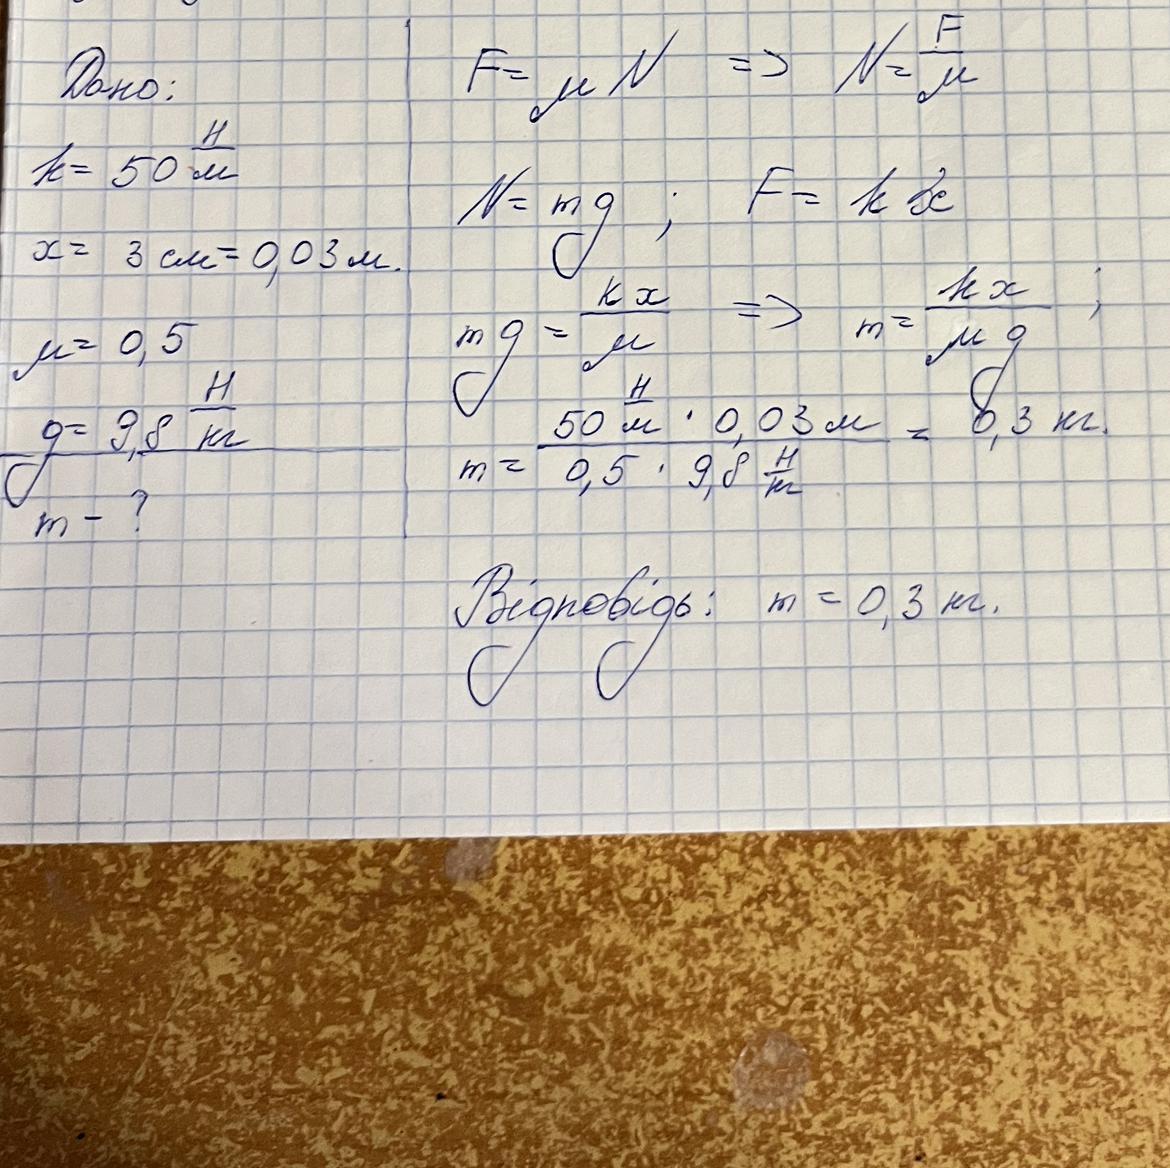 Дано:
k = 50 Н/м
x = 3 см = 0,03 м.
μ = 0,5
g = 9,8 Н/кг
m - ?
F = μ N => N = F/μ
N = mg ; F = k x
mg = kx/μ => m = kx/μg ;
m = 50 Н/м · 0,03 м / 0,5 · 9,8 Н/кг = 0,3 кг.
Відповідь: m = 0,3 кг.